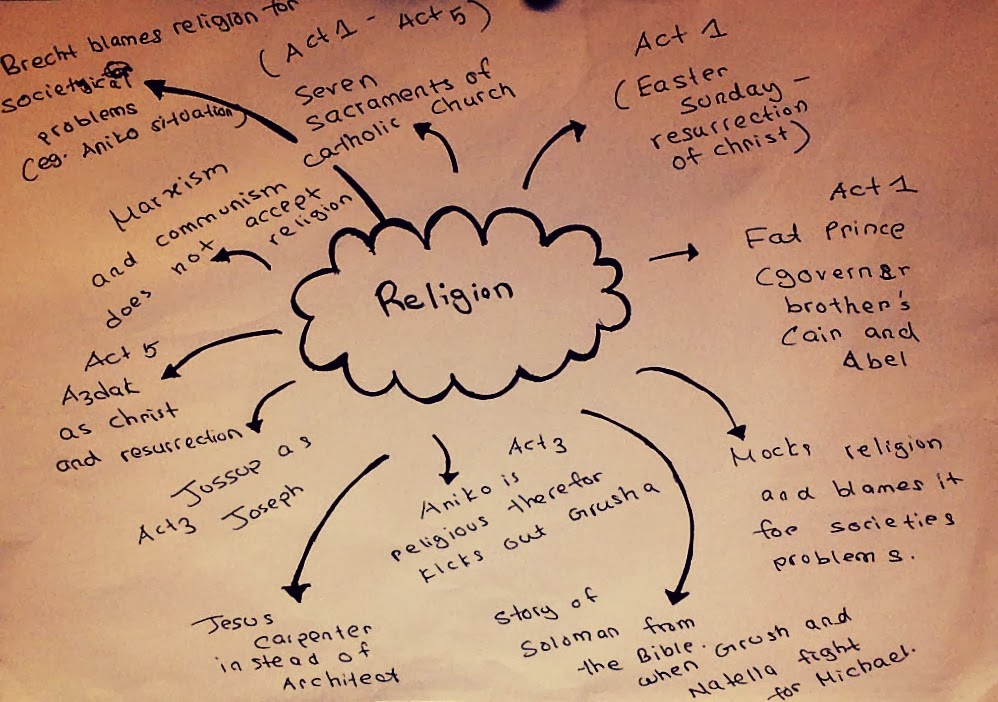 Brecht blames religion for
problems
(eg. Aniko situation)
(Act 1 - Act 5)
Seven
sacraments of
catholic church
Act 1
(Easter
Sunday -
resurrection
of christ)
Marxism
and communism
does not accept
religion
Religion
Act 1
Fat Prince
(governer
brother's
Cain and
Abel
Act 5
Azdak
as christ
and resurrection
Jussup as
Act3 Joseph
Act3
Aniko is
religious therefor
kicks out Grusha
Mocks religion
and blames it
for societies
problems.
Jesus
carpenter
instead of
Architect
Story of
Soloman from
the Bible.
when Grush and
Natella fight
for Michael.